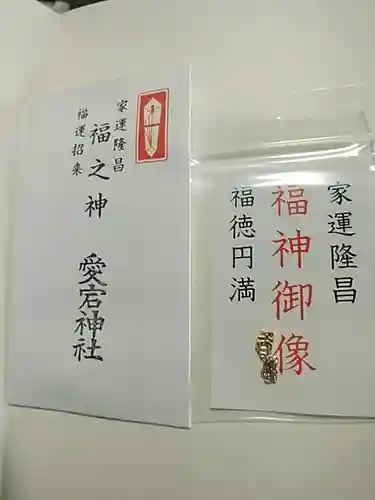 家運隆昌
福之神
福運招来
愛宕神社
家運隆昌
福神御像
福徳円満